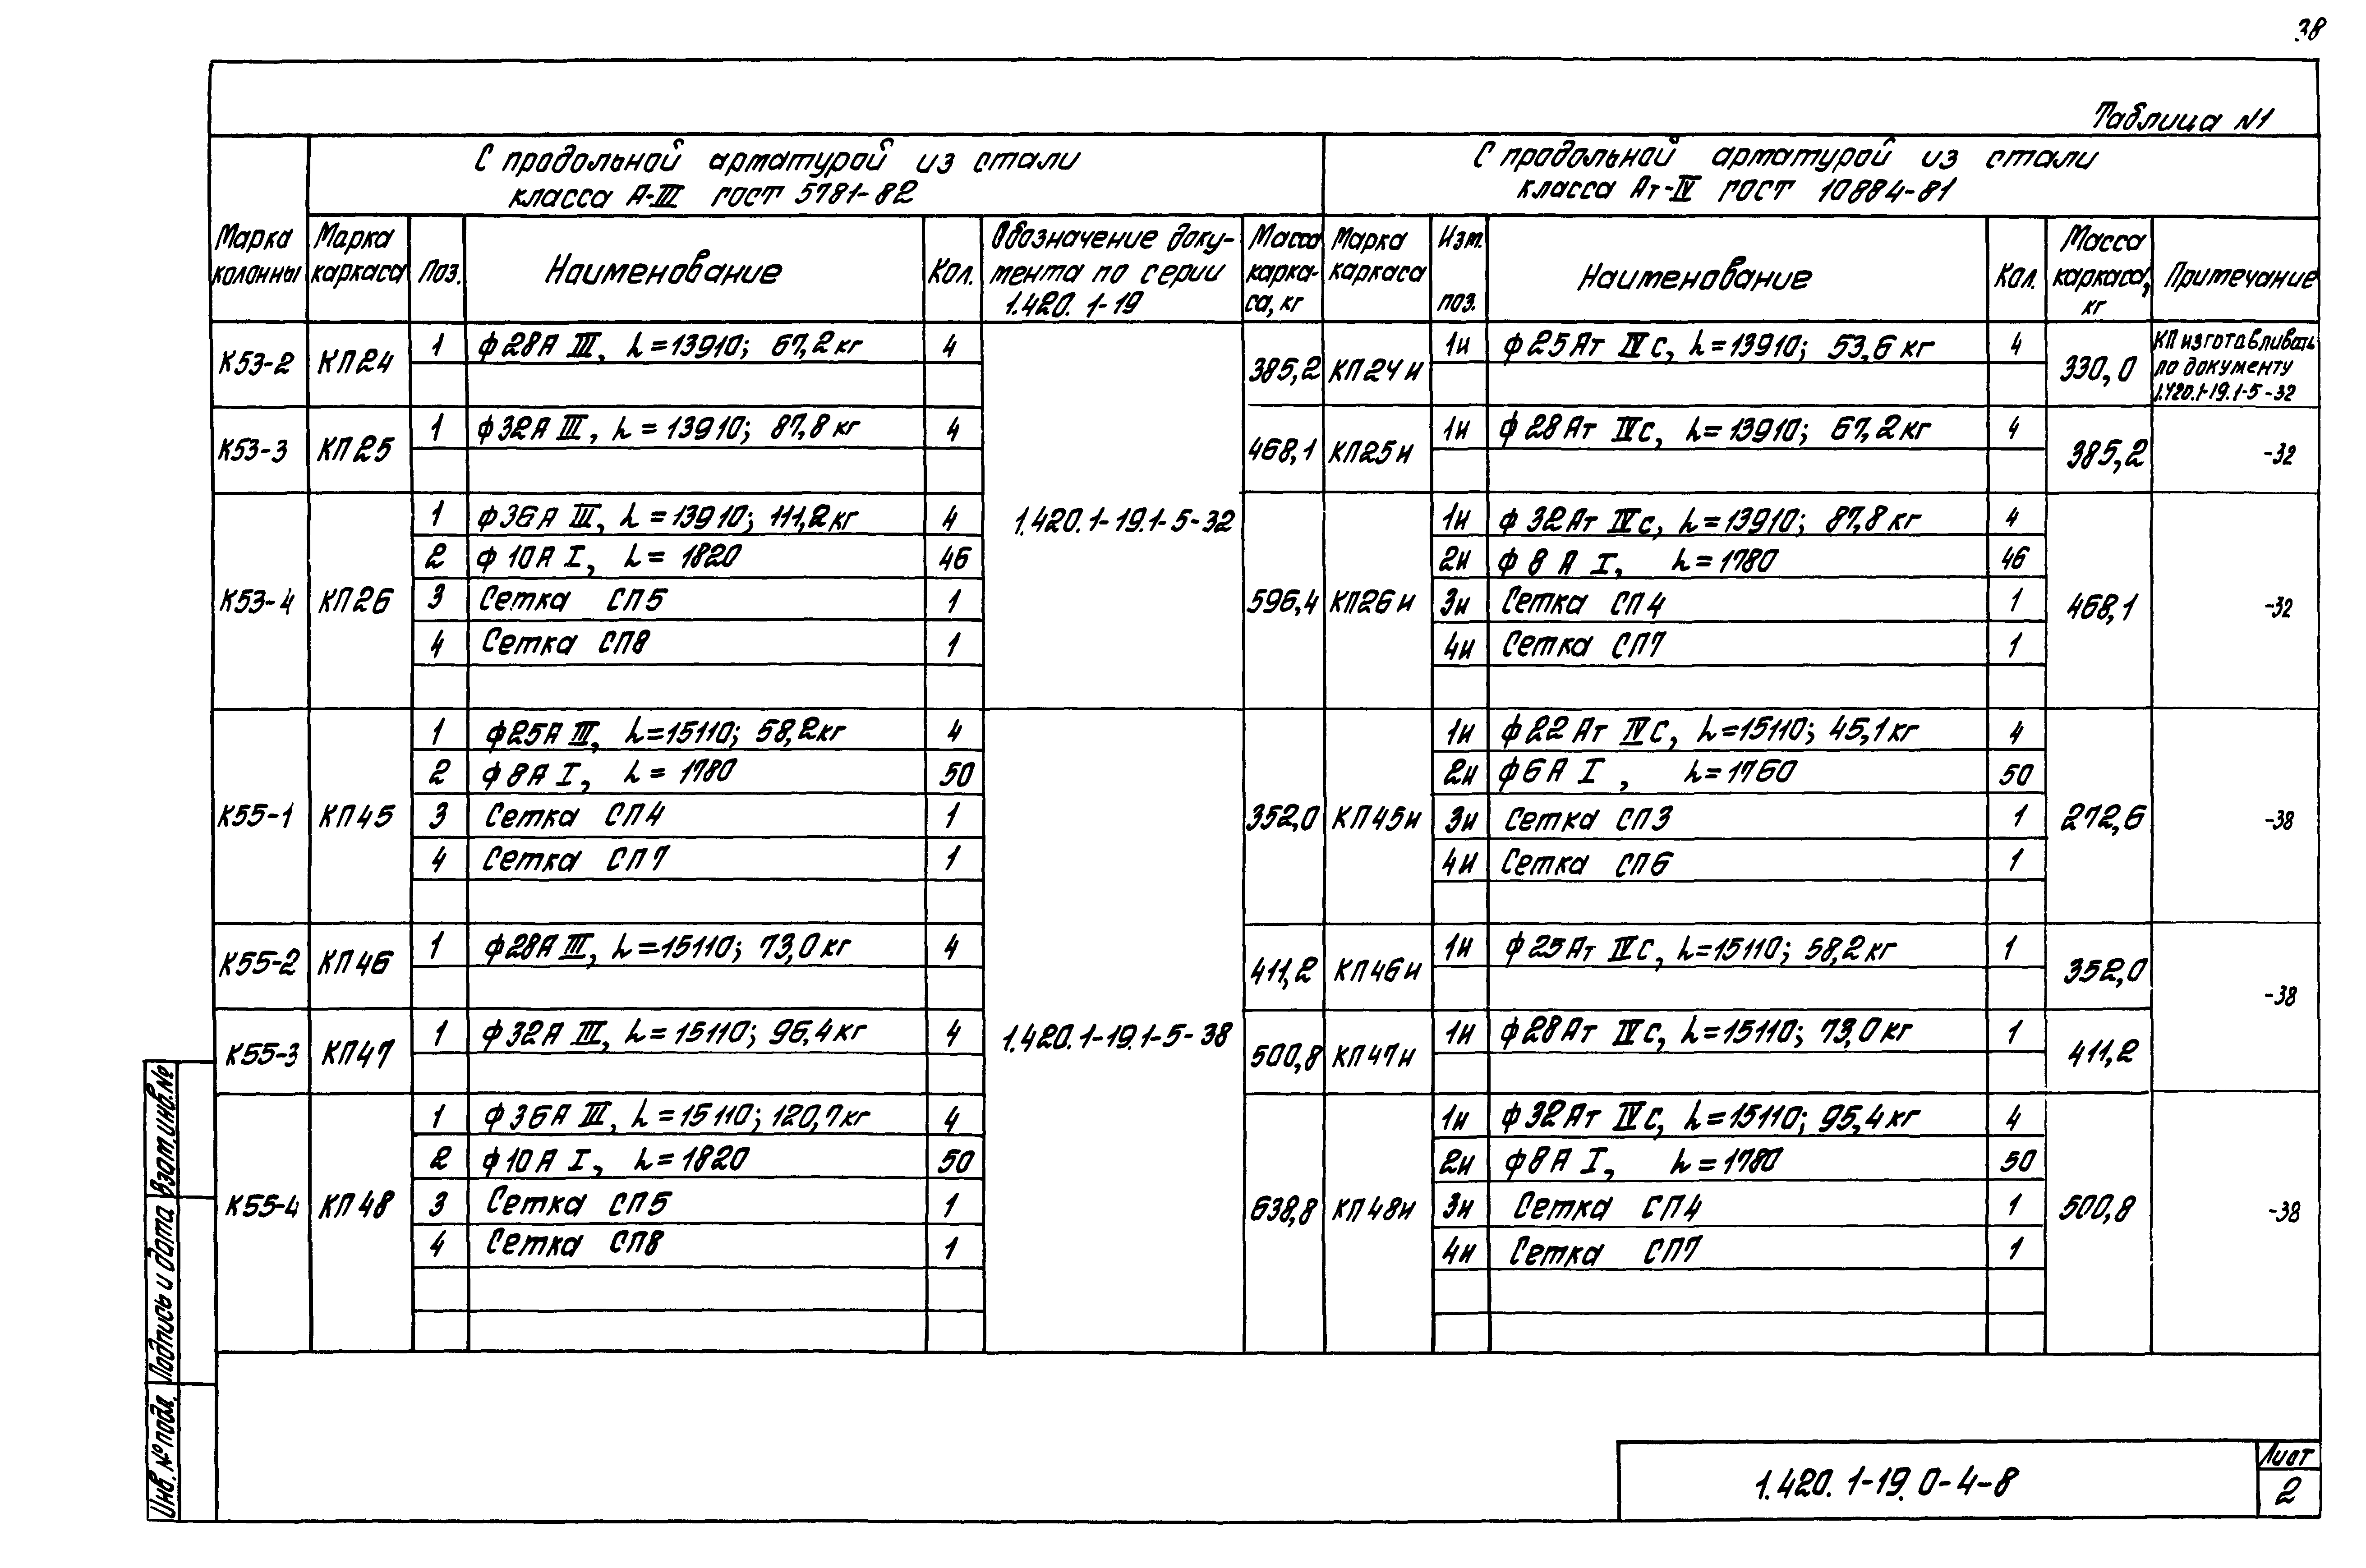 38
Таблица N1
С продольной арматурой из стали
класса А-III ГОСТ 5781-82
С продольной арматурой из стали
класса Ат-IV ГОСТ 10884-81
Марка колонны
Марка каркаса
Поз.
Наименование
Кол.
Обозначение доку-
мента по серии
1.420. 1-19
Масса карка-
са, кг
Марка каркаса
Изм. поз.
Наименование
Кол.
Масса каркаса, кг
Примечание
К53-2 КП24 1 ф28А III, L=13910; 67,2 кг 4 385,2 КП24и 1и ф25Ат IVС, L=13910; 53,6 кг 4 330,0
КП изготавливать
по документу
1.420.1-19.1-5-32
К53-3 КП25 1 ф32А III, L=13910; 87,8 кг 4 468,1 КП25и 1и ф28Ат IVс, L=13910; 67,2 кг 4 385,2 -32
1.420.1-19.1-5-32
К53-4 КП26 1 ф36А III, L=13910; 111,2 кг 4 596,4 КП26и 1и ф32Ат IVс, L=13910; 87,8 кг 4 468,1 -32
2 ф10А I, L=1820 46 2и ф8 А I, L=1780 46
3 Сетка СП5 1 3и Сетка СП4 1
4 Сетка СП8 1 4и Сетка СП7 1
К55-1 КП45 1 ф25А III, L=15110; 58,2 кг 4 352,0 КП45и 1и ф22Ат IVС, L=15110; 45,1 кг 4 272,6 -38
2 ф8А I, L=1780 50 2и ф6А I, L=1760 50
3 Сетка СП4 1 3и Сетка СП3 1
4 Сетка СП7 1 4и Сетка СП6 1
К55-2 КП46 1 ф28А III, L=15110; 73,0 кг 4 411,2 КП46и 1и ф25Ат IVС, L=15110; 58,2 кг 1 352,0 -38
К55-3 КП47 1 ф32А III, L=15110; 96,4 кг 4 1.420.1-19.1-5-38 500,8 КП47и 1и ф28Ат IVС, L=15110; 73,0 кг 1 411,2
К55-4 КП48 1 ф36А III, L=15110; 120,7 кг 4 638,8 КП48и 1и ф32Ат IVС, L=15110; 95,4 кг 4 500,8 -38
2 ф10А I, L=1820 50 2и ф8А I, L=1780 50
3 Сетка СП5 1 3и Сетка СП4 1
4 Сетка СП8 1 4и Сетка СП7 1
Взам.инв.№
Подпись и дата
Инв. № подл.
1.420. 1-19. 0-4-8
Лист
2